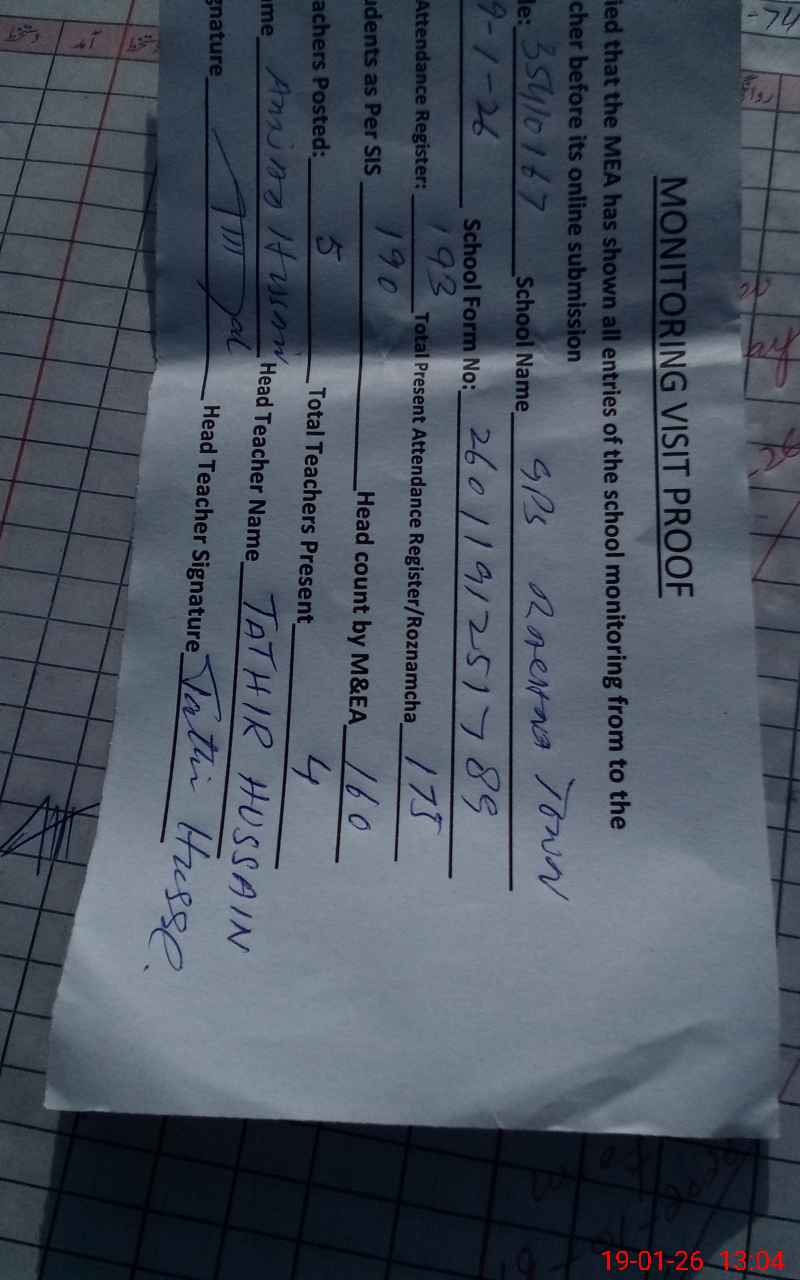 MONITORING VISIT PROOF
ied that the MEA has shown all entries of the school monitoring from to the
cher before its online submission
de: 35410167 School Name GPS Town
9-1-26 School Form No: 2601191251789
Attendance Register: 193 Total Present Attendance Register/Roznamcha 175
udents as Per SIS 190 Head count by M&EA 160
achers Posted: 5 Total Teachers Present 4
ame Hussain Head Teacher Name TATHIR HUSSAIN
gnature Head Teacher Signature Tathir
19-01-26 13:04